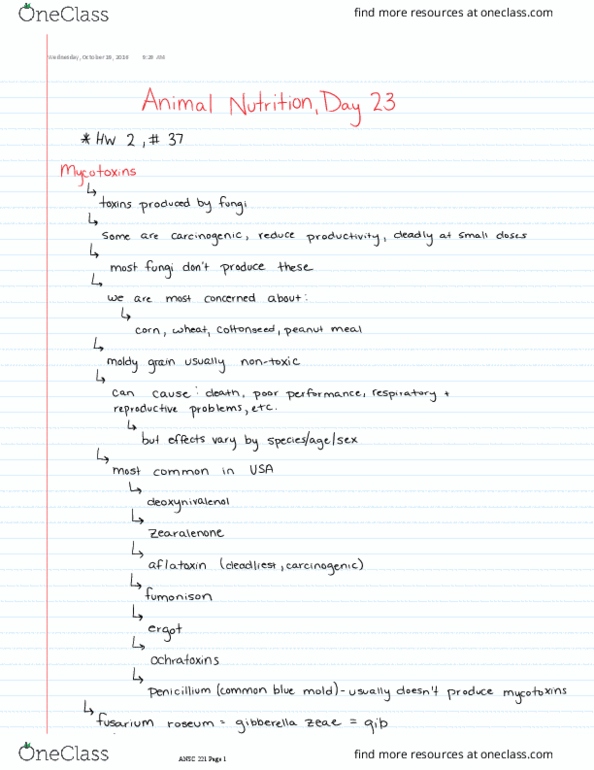 OneClass
find more resources at oneclass.com
Wednesday, October 19, 2016 9:28 AM
Animal Nutrition, Day 23
* HW 2, # 37
Mycotoxins
↳ toxins produced by fungi
↳ Some are carcinogenic, reduce productivity, deadly at small doses
↳ most fungi don't produce these
↳ we are most concerned about:
↳ corn, wheat, cottonseed, peanut meal
↳ moldy grain usually non-toxic
↳ can cause: death, poor performance, respiratory +
reproductive problems, etc.
↳ but effects vary by species/age/sex
↳ most common in USA
↳ deoxynivalenol
↳ Zearalenone
↳ aflatoxin (deadliest, carcinogenic)
↳ fumonison
↳ ergot
↳ ochratoxins
↳ Penicillium (common blue mold) - usually doesn't produce mycotoxins
↳ fusarium roseum = gibberella zeae = gib
OneClass
ANSC 221 Page 1
find more resources at oneclass.com